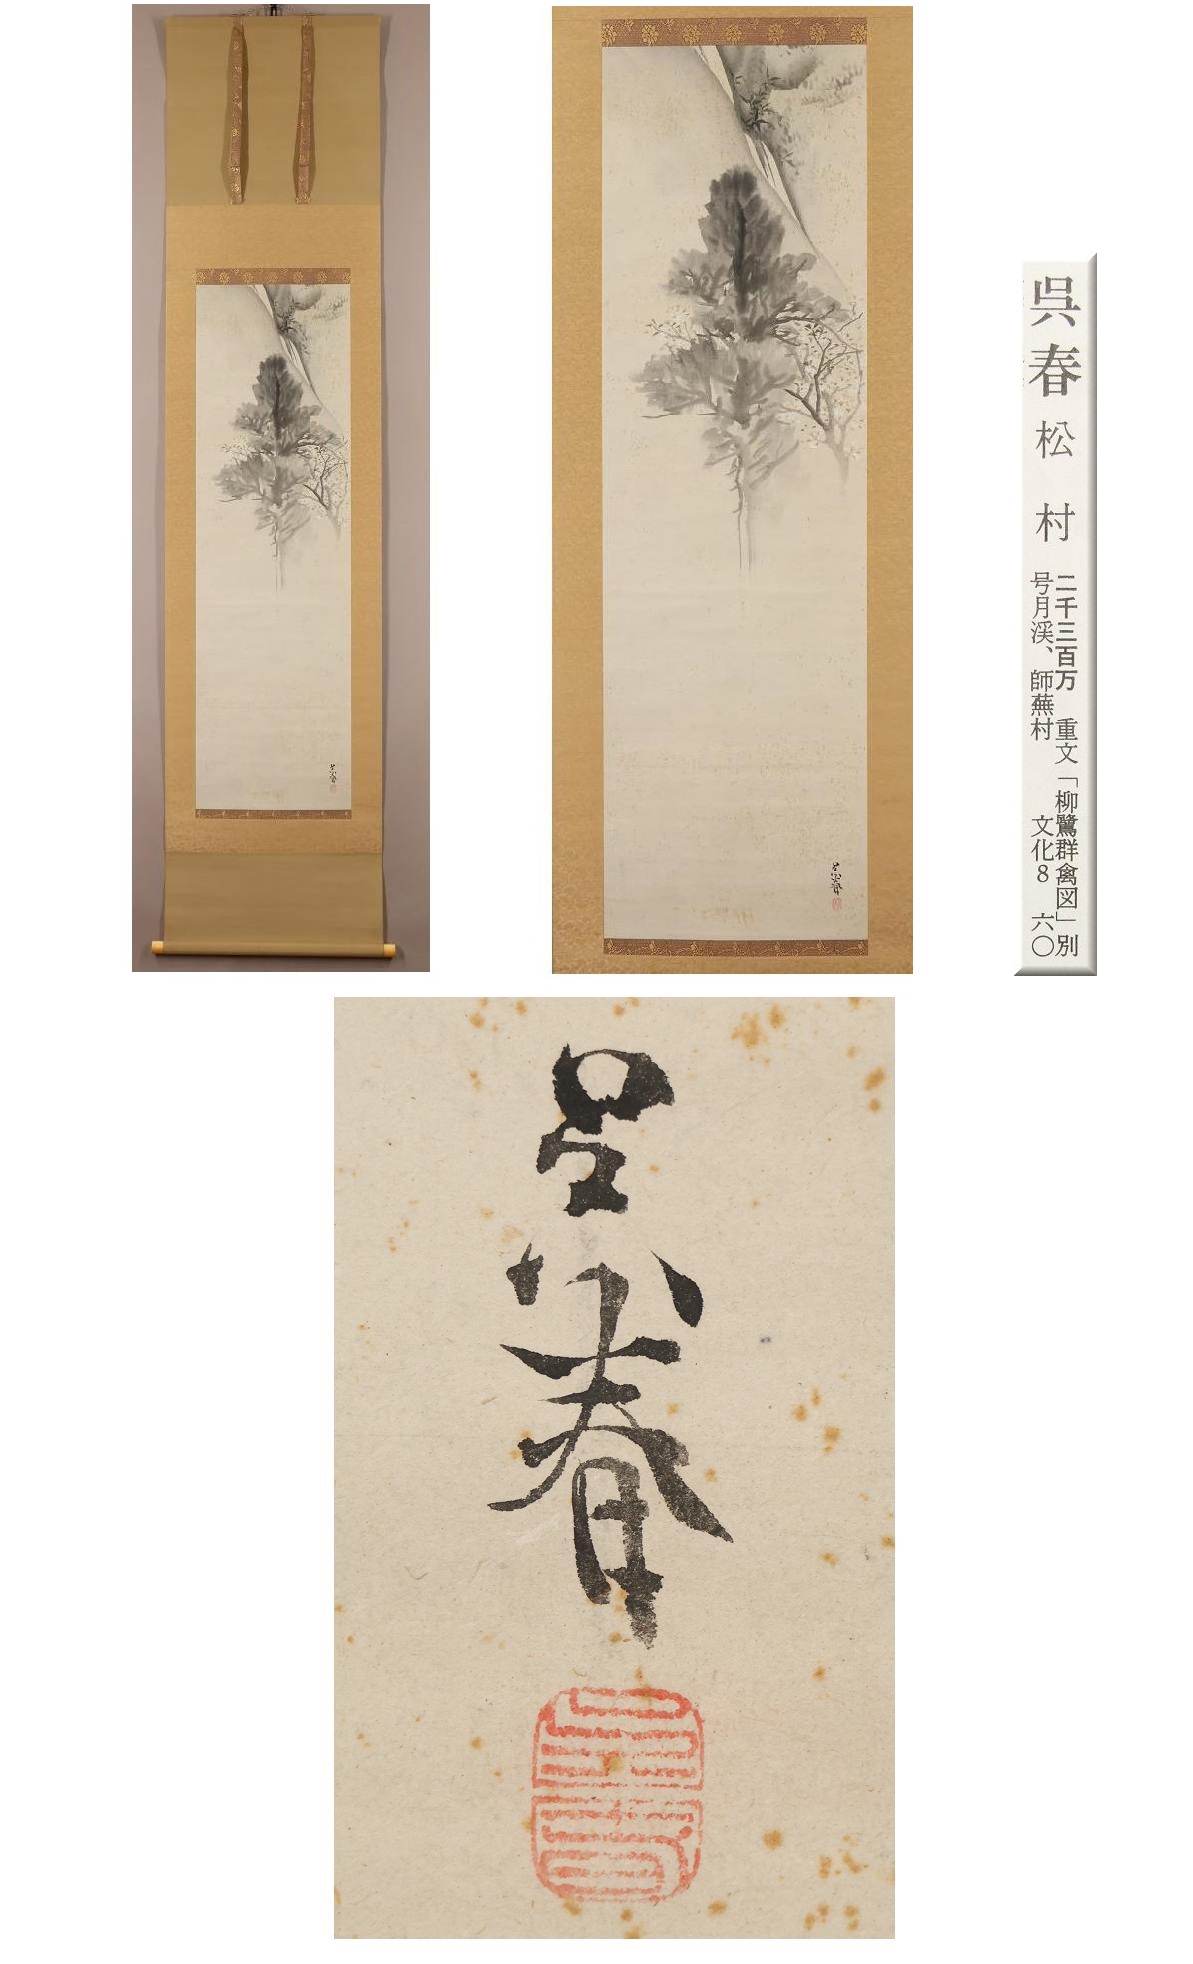 呉春 松村
二千三百万 重文「柳鷺群禽図」別
号月渓、師蕪村 文化8 六〇
呉春